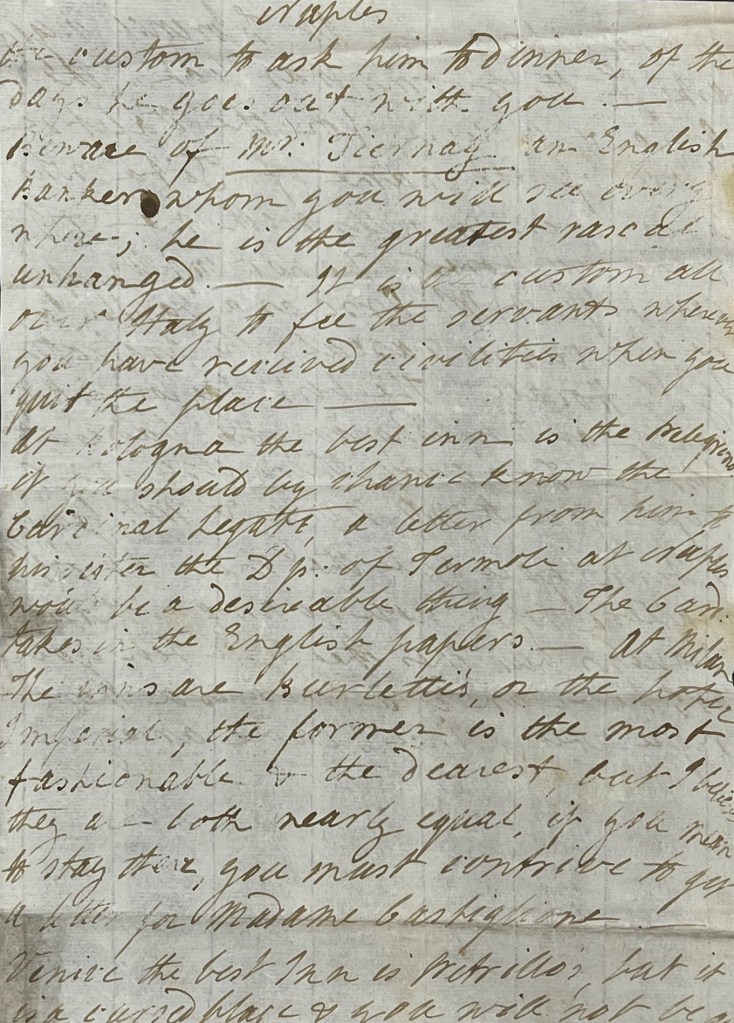 Naples
custom to ask him to dinner, of the
days he goes out with you. —
Beware of Mr. Tiernay an English
Banker whom you will see every
where; he is the greatest rascal
unhanged. — It is the custom all
over Italy to fee the servants wherever
you have received civilities when you
quit the place —
At Bologna the best inn is the Pelegrino
if you should by chance know the
Cardinal Legate, a letter from him to
his sister the Dss. of Termoli at Naples
would be a desireable thing — The Card.
takes in the English papers. — At Milan
The inns are Burlettis, or the hotel
Imperial, the former is the most
fashionable & the dearest, but I believe
they are both nearly equal, if you mean
to stay there, you must contrive to get
a letter for Madame Castiglione —
Venice the best Inn is Petrillo's, but it
is a cursed place & you will not be